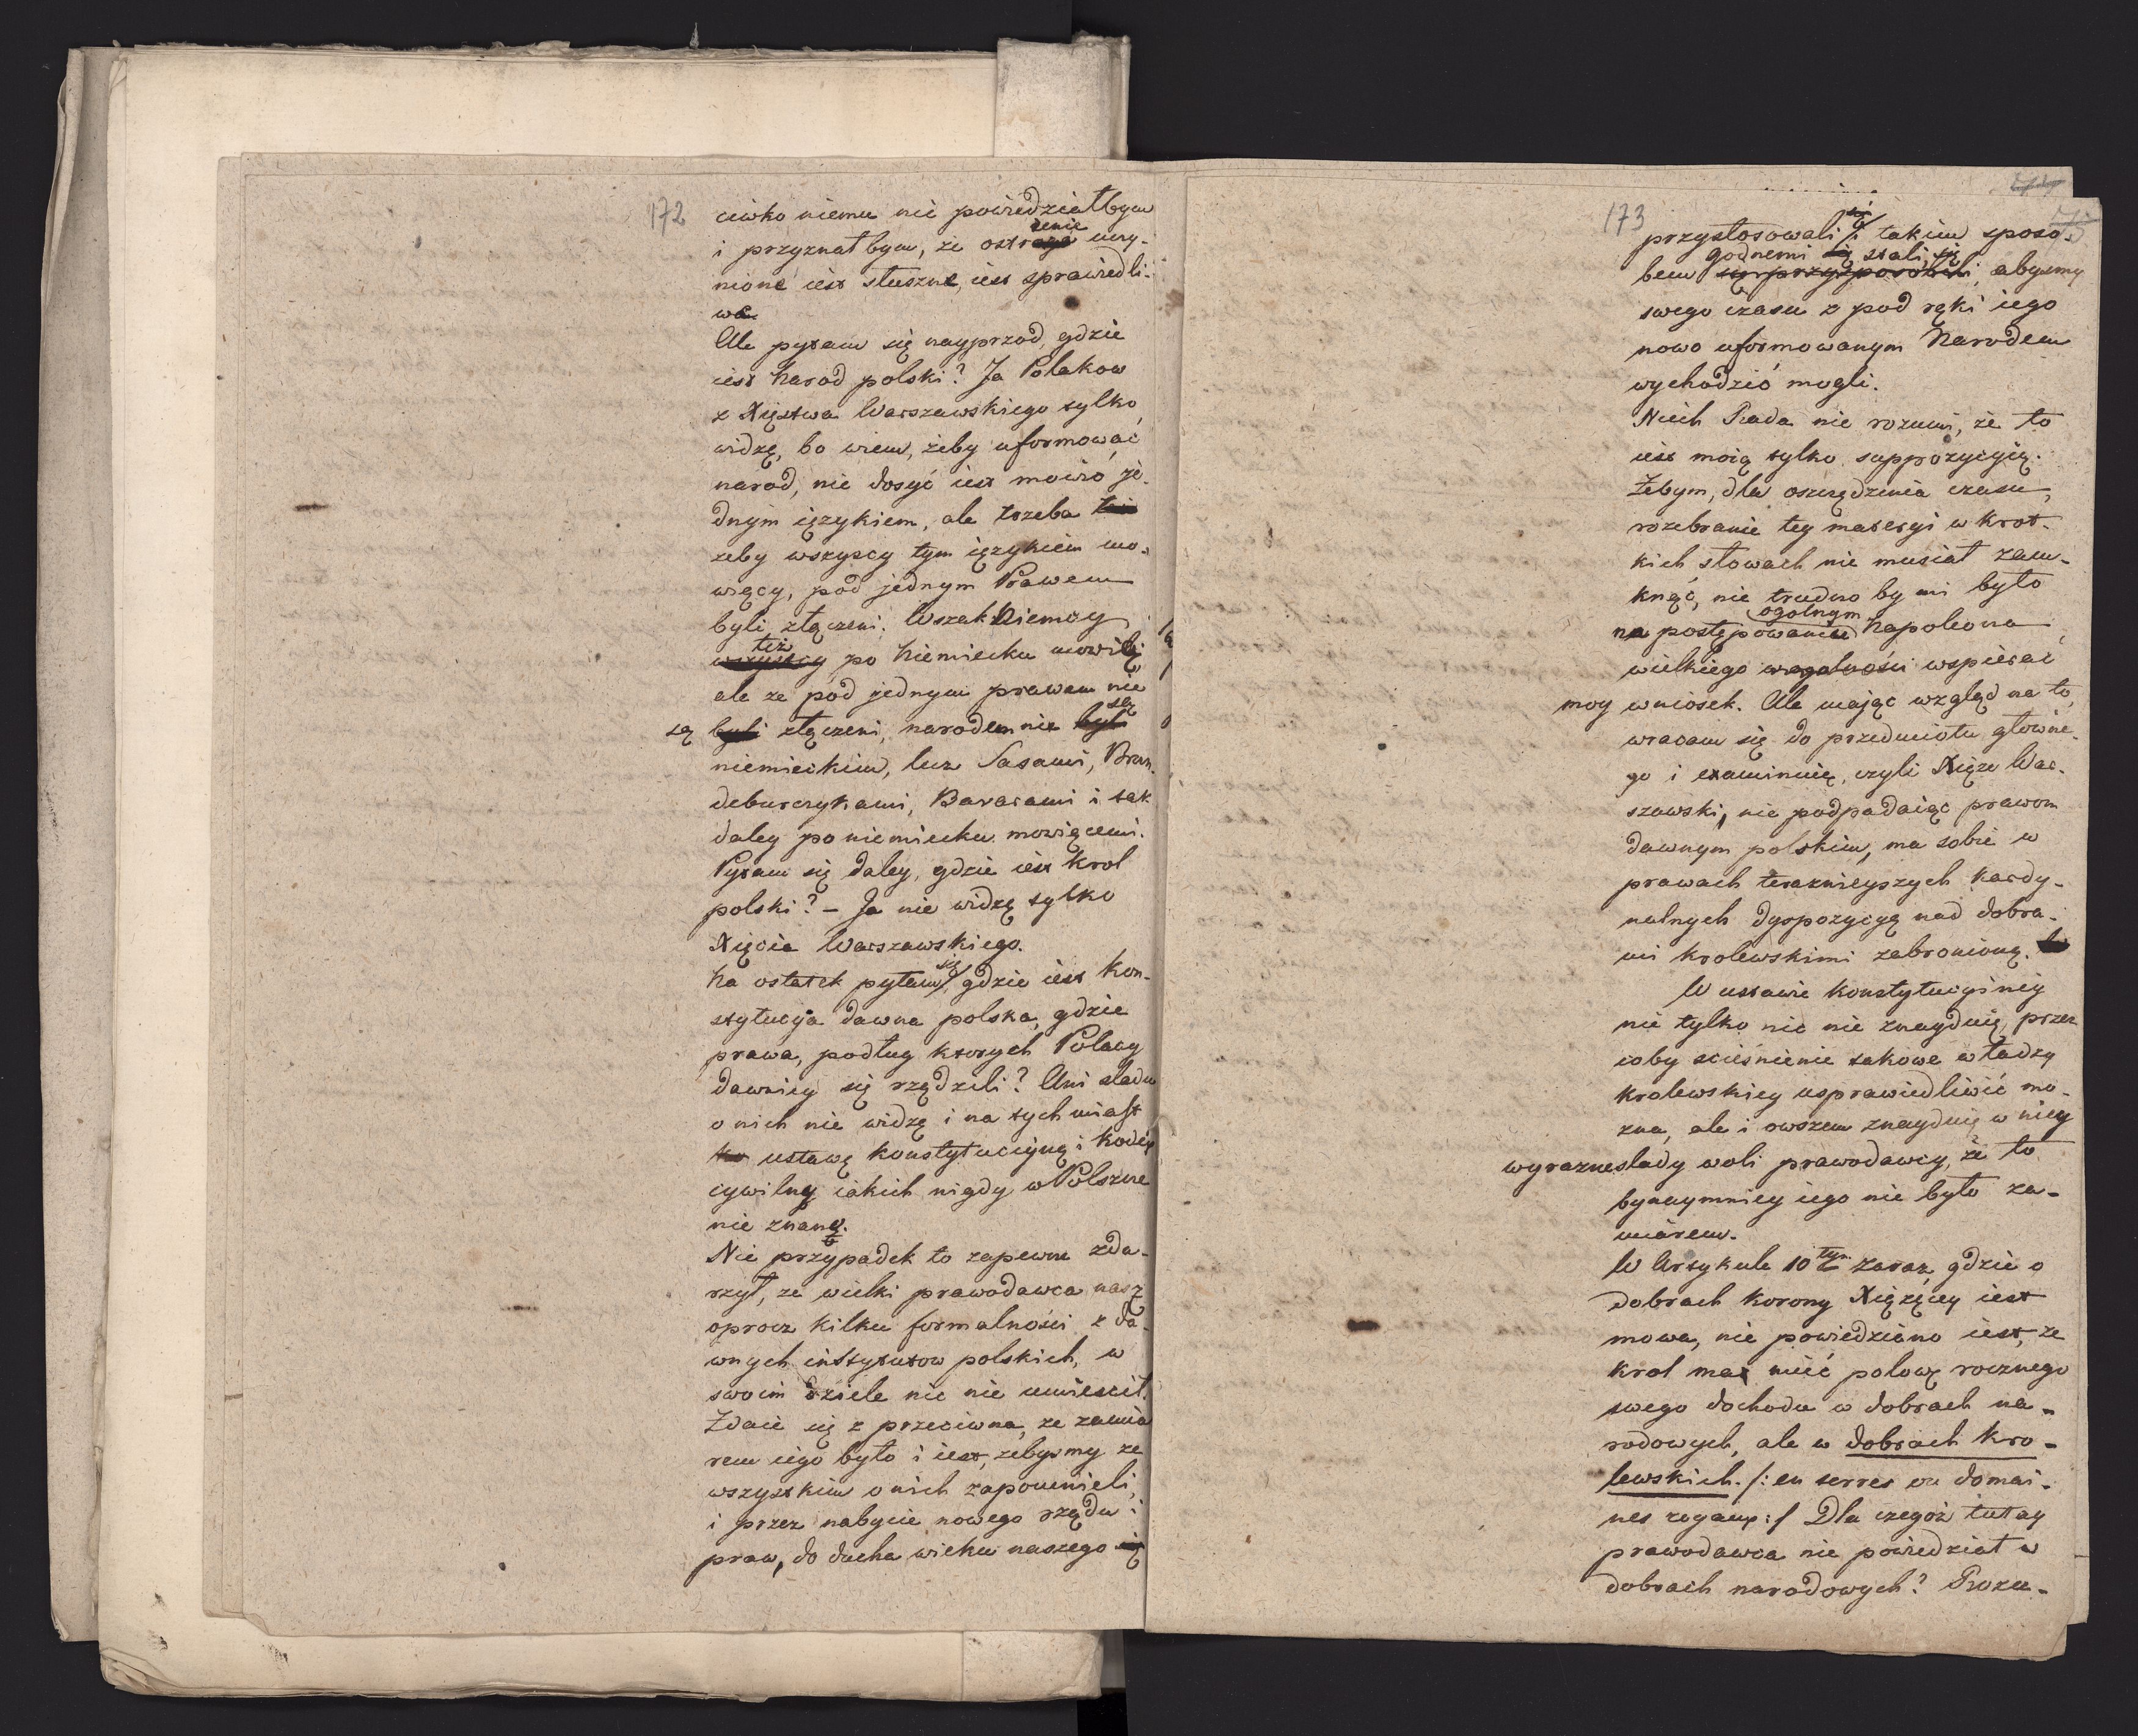 172
ciwko niemu nic powiedziałbym
i przyznałbym, że ostrzeżenie uczy-
nione iest słuszne, iest sprawiedli-
we
Ale pytam się nayprzod, gdzie
iest Narod polski? Ja Polakow
z Xięstwa Warszawskiego tylko
widzę, bo wiem, żeby uformować
narod, nie dosyć iest mowić je-
dnym ięzykiem, ale trzeba
zeby wszyscy tym ięzykiem mo-
wiący, pod jednym Prawem
byli złączeni. Wszak Niemcy
też
wszyscy po Niemiecku mowią
ale ze pod jednym prawem nie
są
są byli złączeni, narodem nie byli
niemieckim, lecz Sasami, Bran-
deburczykami, Bawarami i tak
daley po niemiecku mowiącemi.
Pytam się daley, gdzie iest Krol
polski? – Ja nie widzę tylko
Xięcia Warszawskiego.
Na ostatek pytam się gdzie iest Kon-
stytucya dawna polska, gdzie
prawa, podług ktorych Polacy
dawniey się rządzili? Ani sladu
o nich nie widzę i na tych miast
ustawę konstytucyiną i Kodex
cywilny iakich nigdy w Polszcze
nie znano.
Nie przypadek to zapewne zda-
rzył, ze wielki prawodawca nasz
oprocz kilku formalności z da-
wnych instytutow polskich, w
swoim dziele nic nie umieścił.
Zdaie się z przeciwna, ze zamia
rem iego było i iest, zebysmy ze
wszystkim o nich zapomnieli,
i przez nabycie nowego rządu i
praw, do ducha wieku naszego się
173
przystosowali się i takim sposo-
godnemi się stali, się
bem się przysposobili, abysmy
swego czasu z pod ręki iego
nowo uformowanym Narodem
wychodzić mogli.
Niech Rada nie rozumi, że to
iest moią tylko suppozycyią.
Zebym, dla oszczędzenia czasu,
rozebranie tey materyi w krot-
kich słowach nie musiał zam-
knąć, nie trudno by mi było
ogolnym
na postępowaniu Napoleona
wielkiego w ogolności wspierać
moy wniosek. Ale mając wzgląd na to,
wracam się do przedmiotu głowne-
go i examinuię, czyli Xiąze War-
szawski, nie podpadaiąc prawom
dawnym polskim, ma sobie w
prawach teraznieyszych kardy-
nalnych dyspozycyą nad dobra-
mi krolewskimi zabronioną.
W ustawie konstytucyiney
nie tylko nic nie znayduię, przez
coby scieśnienie takowe władzy
krolewskiey usprawiedliwić mo-
zna, ale i owszem znayduię w niey
wyrazne slady woli prawodawcy, że to
bynaymniey iego nie było za-
miarem.
W Artykule 10tym zaraz, gdzie o
dobrach korony Xiązęcey iest
mowa, nie powiedziano iest, ze
krol ma mieć połowę rocznego
swego dochodu w dobrach na-
rodowych, ale w dobrach kro-
lewskich. /: en terres ou domai-
nes royaux :/ Dla czegoż tutay
prawodawca nie powiedział w
dobrach narodowych? Rozu-